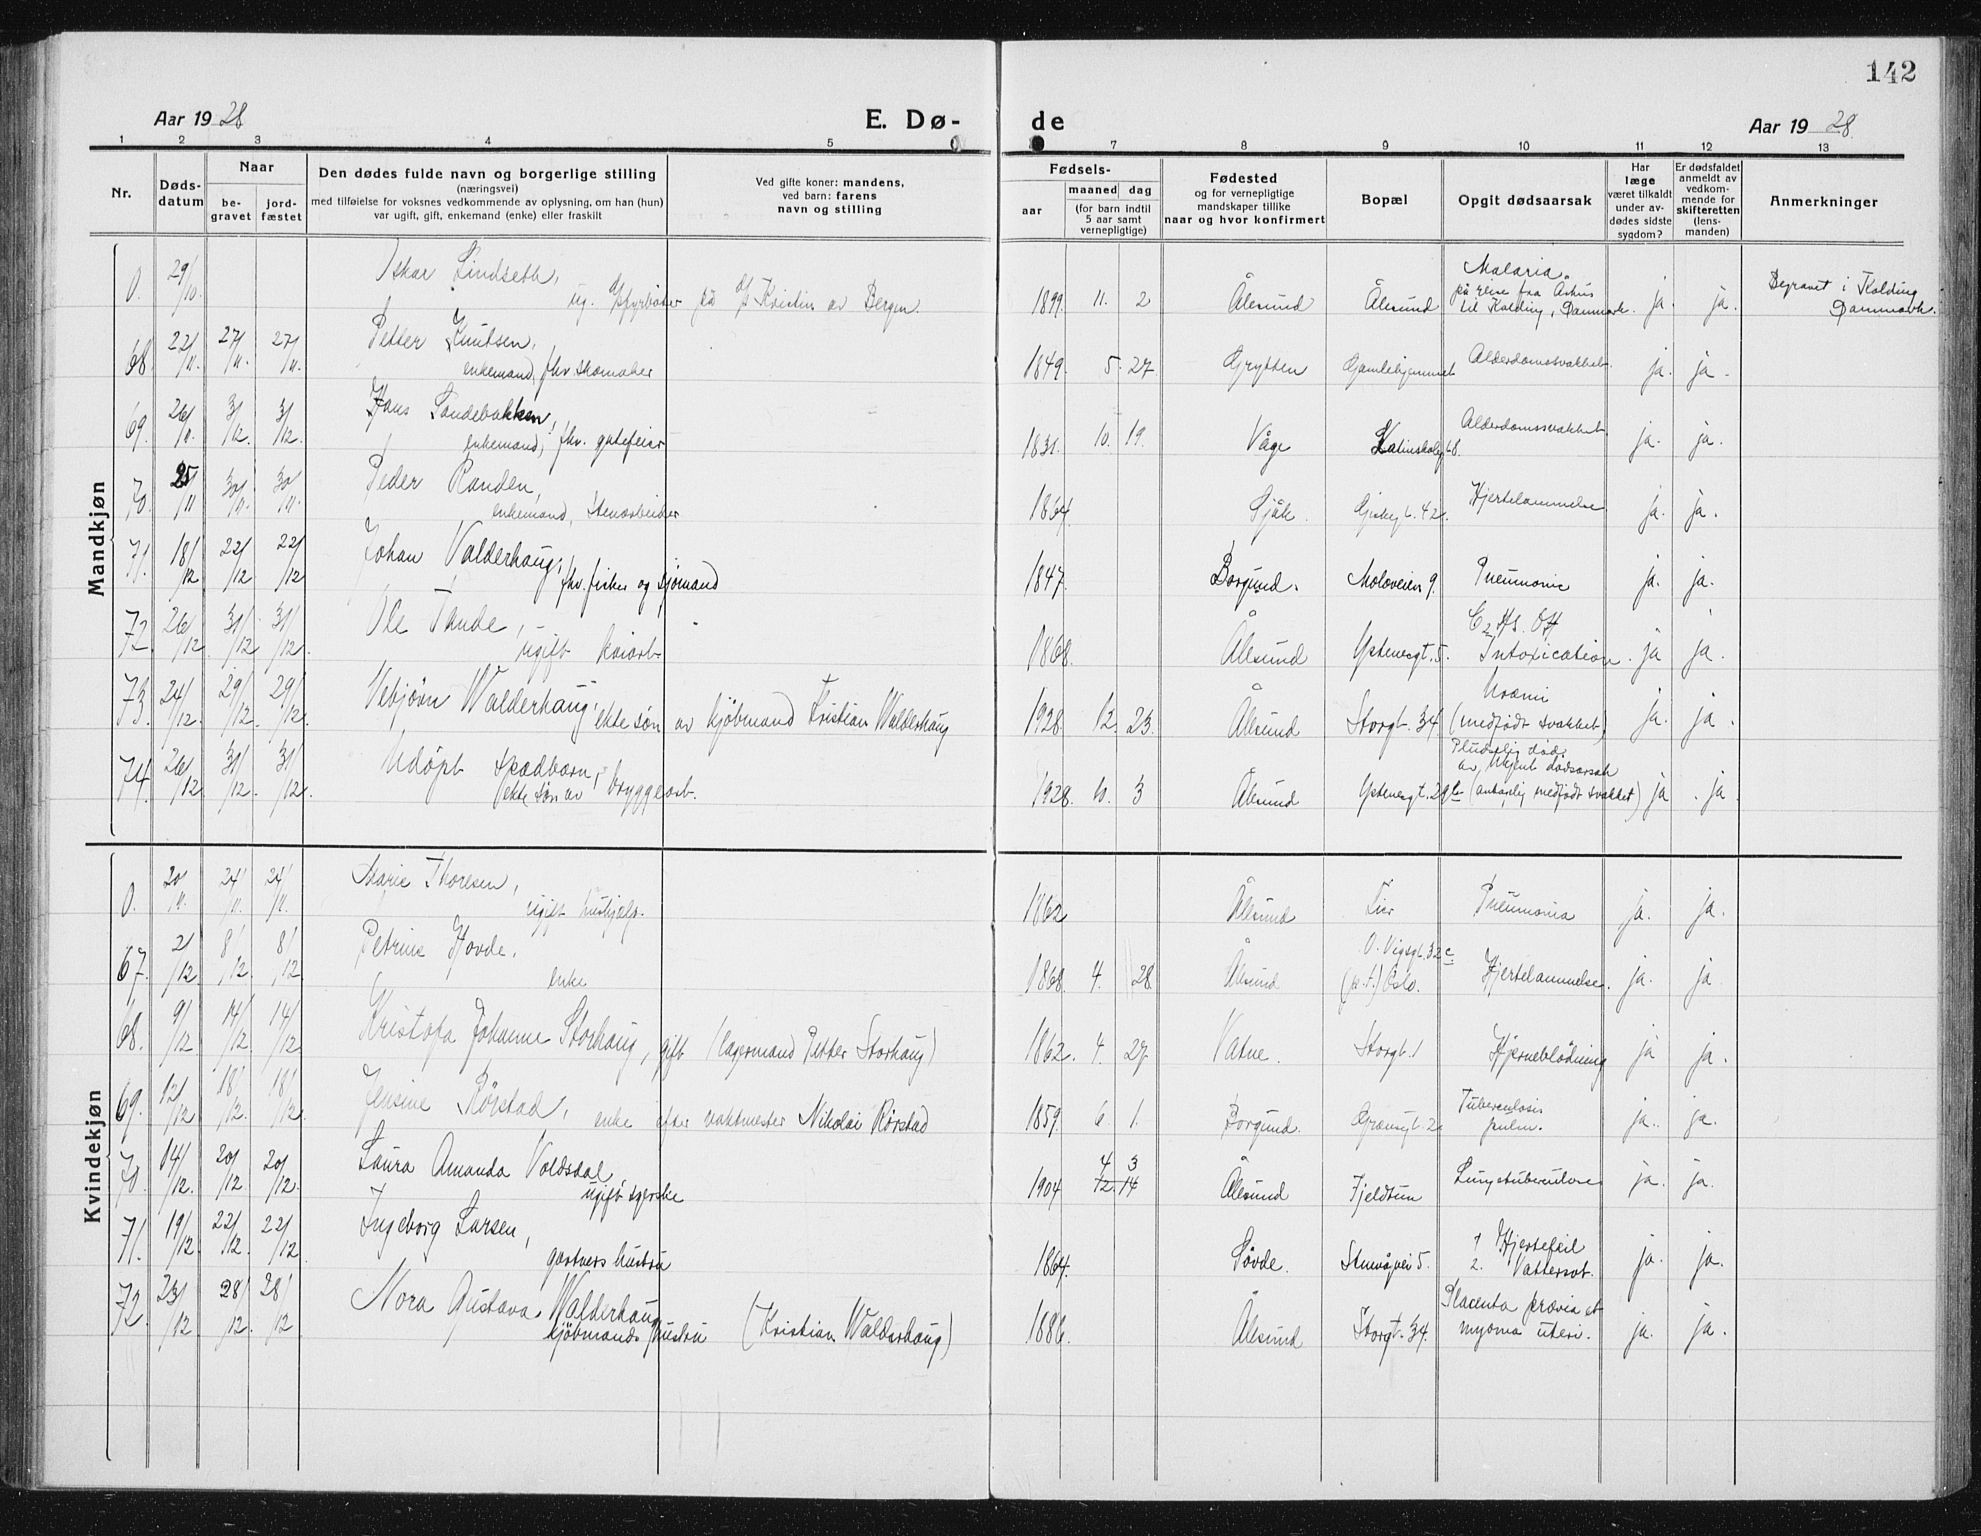 142
Aar 1928
E. Dø-
de
Aar 1928
1 2 3 4 5 7 8 9 10 11 12 13
Nr.
Døds-
datum
Naar
be-
gravet
jord-
fæstet
Den dødes fulde navn og borgerlige stilling
(næringsvei)
med tilføielse for voksnes vedkommende av oplysning, om han (hun)
var ugift, gift, enkemand (enke) eller fraskilt
Ved gifte koner: mandens,
ved barn: farens
navn og stilling
Fødsels-
aar
maaned dag
(for barn indtil
5 aar samt
vernepligtige)
Fødested
og for vernepligtige
mandskaper tillike
naar og hvor konfirmert
Bopæl
Opgit dødsaarsak
Har
læge
været tilkaldt
under av-
dødes sidste
sygdom?
Er dødsfaldet
anmeldt av
vedkom-
mende for
skifteretten
(lens-
manden)
Anmerkninger
Mandkjøn
0. 29/10. Oskar Lindseth,
ug. fyrbøter på Kristin av Bergen. 1899 11. 2 Ålesund Ålesund Malaria.
på reise fra Århus
til Kolding, Danmark. ja. ja. Begravet i Kolding
Danmark.
68 22/11. 27/11. 27/11. Petter Knutsen,
enkemand, fhv. skomaker 1849. 5. 27 Grytten Gamlehjemmet Alderdomssvakhet. ja. ja.
69. 26/11. 3/12. 3/12. Hans Sandebakken,
enkemand, fhv. gatefeier 1831. 10. 19. Våge Latinskolegt. 8. Alderdomssvakhet. ja. ja.
70. 25/11 30/11. 30/11. Peder Randen,
enkemand, stenarbeider 1864. Sjåk. Giskegt. 42. Hjertelammelse ja. ja.
71. 18/12 22/12 22/12 Johan Valderhaug,
fhv. fisker og sjømand 1847. Borgund. Moloveien 9. Pneumonie ja. ja.
72. 26/12 31/12 31/12. Ole Tande,
ugift kaiarb. 1868. Ålesund Ystenesgt. 5. C2 H5. OH
Intoxication. ja ja.
73. 24/12. 29/12. 29/12. Vebjørn Walderhaug,
ekte søn av kjøbmand Kristian Walderhaug 1928. 12. 23. Ålesund Storgt. 34 (medfødt svakhet) ja. ja.
74. 26/12. 31/12. 31/12. Udøpt spædbarn,
ekte søn av bryggearb. 1928. 10. 3 Ålesund Ystenesgt. Pludselig død
av ukjent dødsårsak
(antagelig medfødt svakhet) ja. ja.
Kvindekjøn
0. 20/11. 24/11. 24/11. Marie Thoresen,
ugift hushjelp. 1862 Ålesund Lier Pneumonia ja. ja.
67. 2/12 8/12. 8/12 Petrine Hovde.
enke 1868. 4. 28 Ålesund O. Vigsgt. 32c
(p.t.) Oslo. Hjertelammelse. ja. ja
68. 9/12 14/12 14/12 Kristofa Johanne Storhaug, gift (lagermand Petter Storhaug) 1862. 4. 27. Vatne. Storgt. 1 Hjerneblødning ja ja.
69. 12/12 18/12. 18/12. Jensine Rørstad, enke efter vaktmester Nikolai Rørstad 1859. 6. 1. Borgund. Grensegt. 2 Tuberculosis
pulm. ja. ja.
70. 14/12. 20/12 20/12. Laura Amanda Voldsdal
ugift syerske 1904 4 3
12. 14 Ålesund Fjeldtun Lungetuberkulose ja. ja.
71. 19/12. 22/12. 22/12 Ingeborg Larsen,
gartners hustru 1864. Søvde. Stenvågvei 5. 1 Hjertefeil
2. Vattersot. ja. ja.
72. 23/12 28/12. 28/12 Nora Gustava Walderhaug
kjøbmands hustru (Kristian Walderhaug) 1886. Ålesund Storgt. 34. Placenta prævia et
myoma uteri. ja. ja.